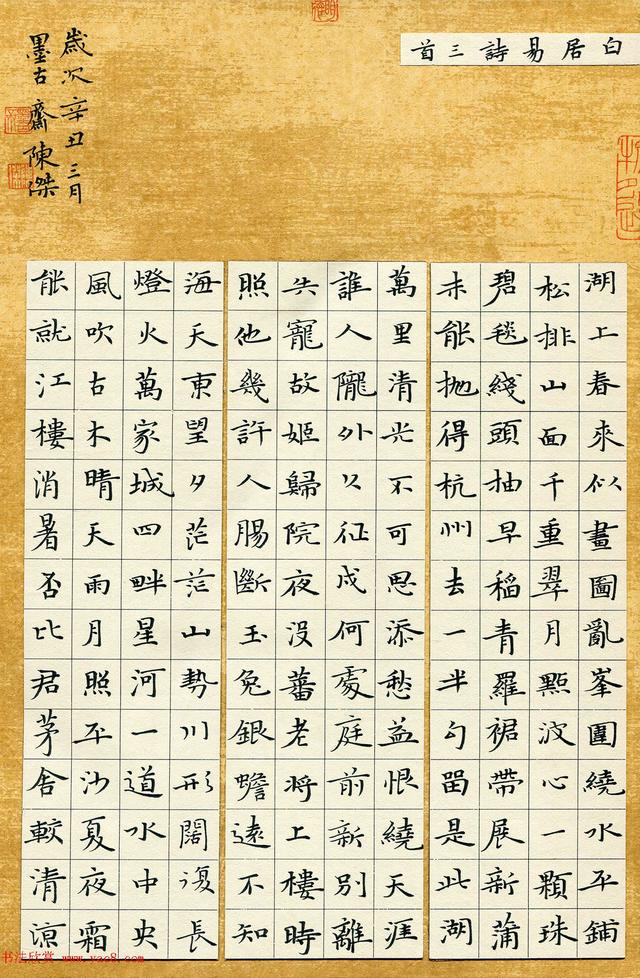 白居易詩三首
湖上春來似畫圖亂峯圍繞水平鋪
松排山面千重翠月點波心一顆珠
碧毯綫頭抽早稻青羅裙帶展新蒲
未能抛得杭州去一半勾留是此湖
萬里清光不可思添愁益恨繞天涯
誰人隴外久征戍何處庭前新別離
失寵故姬歸院夜沒蕃老將上樓時
照他幾許人腸斷玉兔銀蟾遠不知
海天東望夕茫茫山勢川形闊復長
燈火萬家城四畔星河一道水中央
風吹古木晴天雨月照平沙夏夜霜
能就江樓消暑否比君茅舍較清涼
歲次辛丑三月
墨古齋陳傑
书法欣赏 www.yac8.com